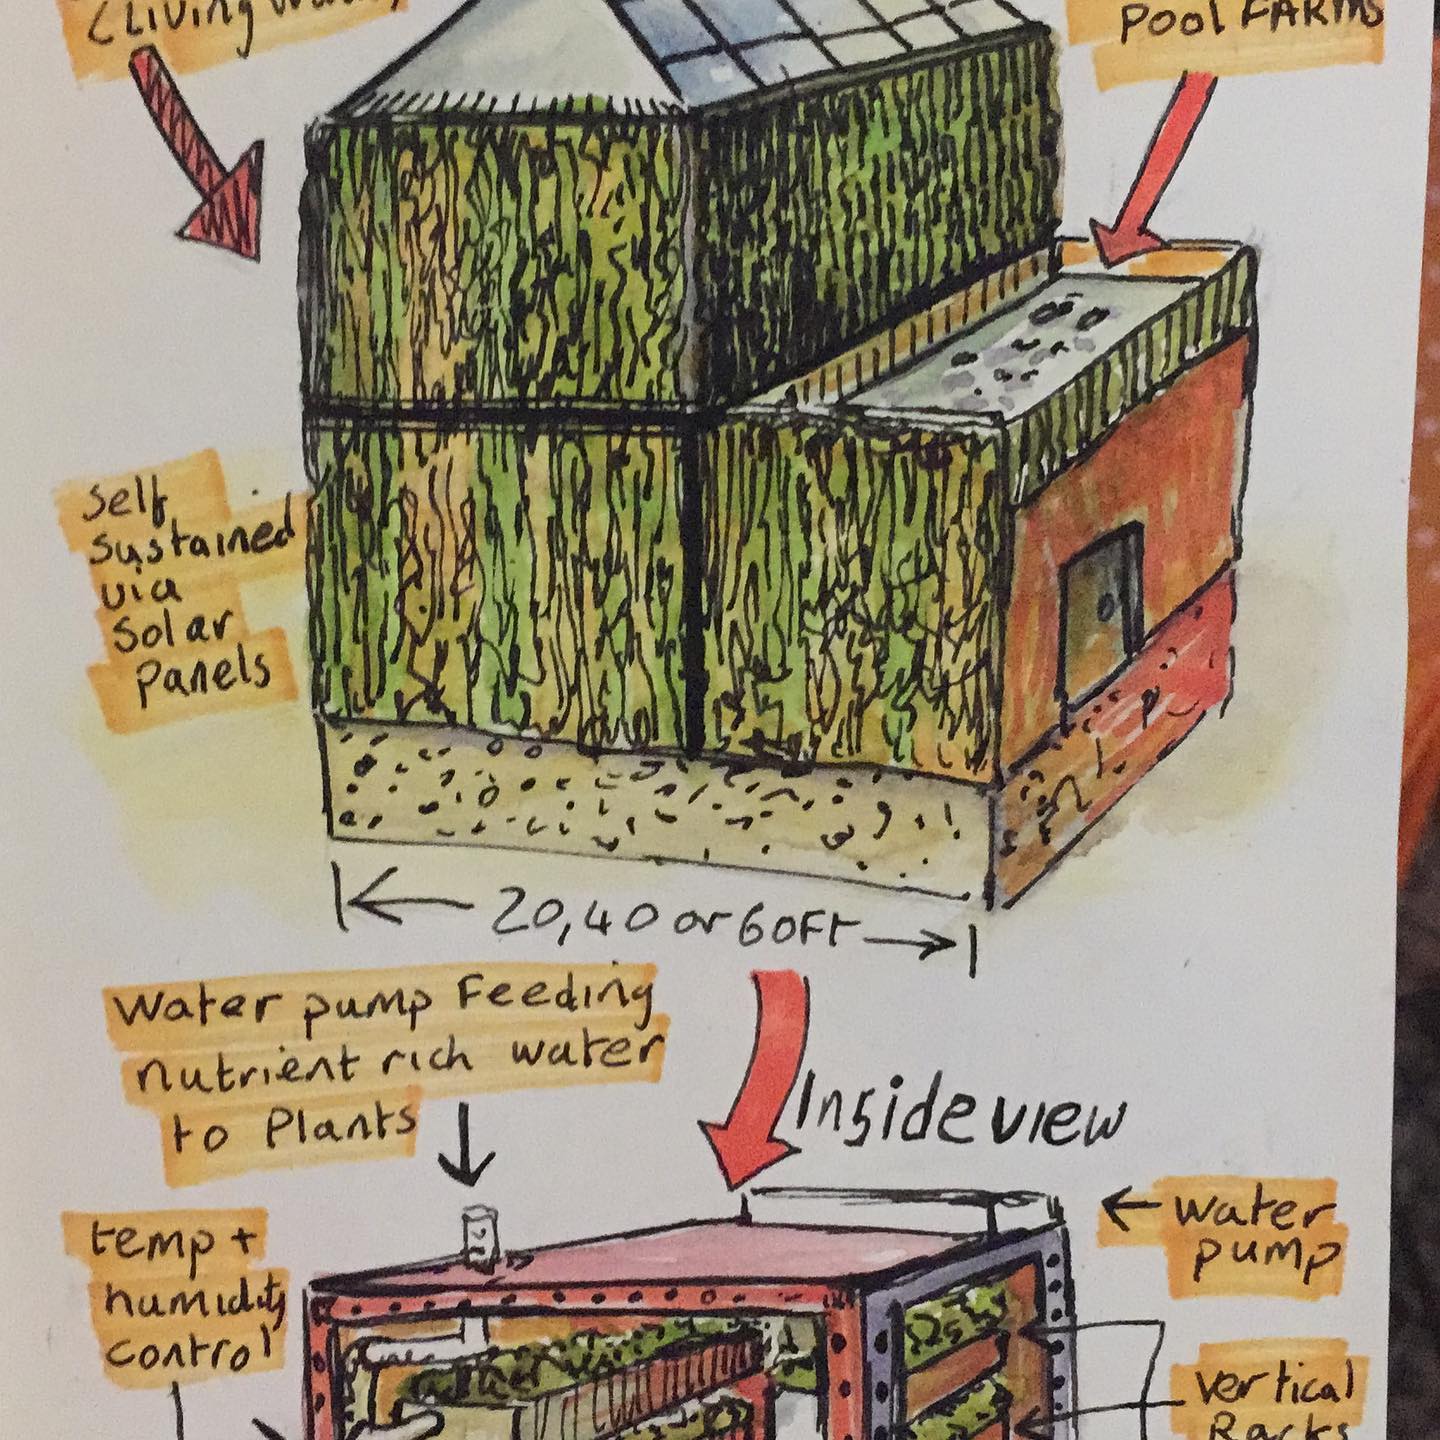 (Living walls)
Pool FARMS
Self
sustained
via
Solar
Panels
20,40 or 60Ft
Water pump Feeding
nutrient rich water
to Plants
Inside view
temp +
humidity
control
Water
pump
Vertical
Racks